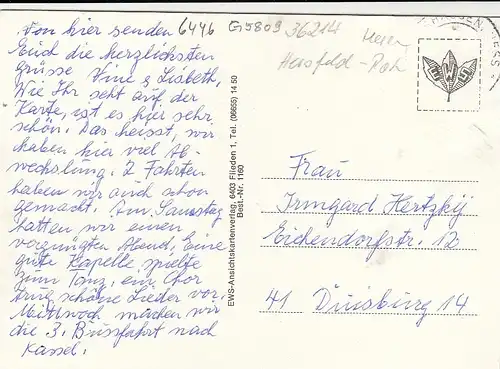 Von hier senden
Euch die herzlichsten
Grüsse Vine & Lisbeth.
Wie Ihr seht auf der
Karte, ist es hier sehr
schön. Das heisst, wir
haben hier viel Ab-
wechslung. 2 Fahrten
haben wir auch schon
gemacht. Am Samstag
hatten wir einen
vergnügten Abend. Eine
gute Kapelle spielte
zum Tanz, ein Chor
trug schöne Lieder vor.
Mittwoch machen wir
die 3. Bussfahrt nach
Kassel.
6446 G5809 36214
Hersfeld-Rot
EWS-Ansichtskartenverlag, 6403 Flieden 1, Tel. (06655) 14 50
Best.-Nr. 1160
EWS
Frau
Irmgard Hertzkij
Eichendorfstr. 12
41 Duisburg 14